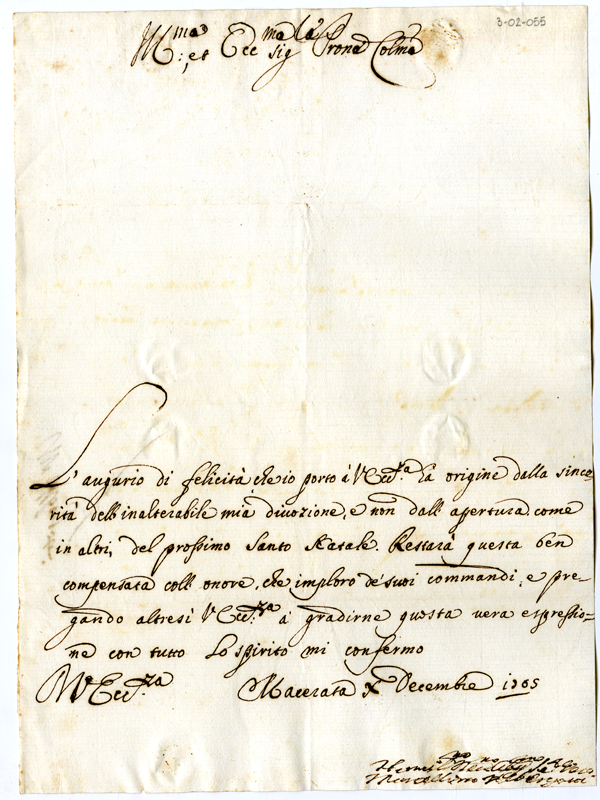 3-02-055
Ill:ma et Ecc:ma Sig:ra Pron:a Colma
L'augurio di felicità, che io porto à V Ecc:za hà origine dalla since-
rità dell'inalterabile mia divozione, e non dall'apertura, come
in altri, del prossimo Santo Natale. Restarà questa ben
compensata coll'onore, che imploro de' suoi commandi; e pre-
gando altresì V Ecc:za à gradirne questa vera espressio-
ne con tutto Lo spirito mi confermo
D V Ecc:za Macerata X Decembre 1705